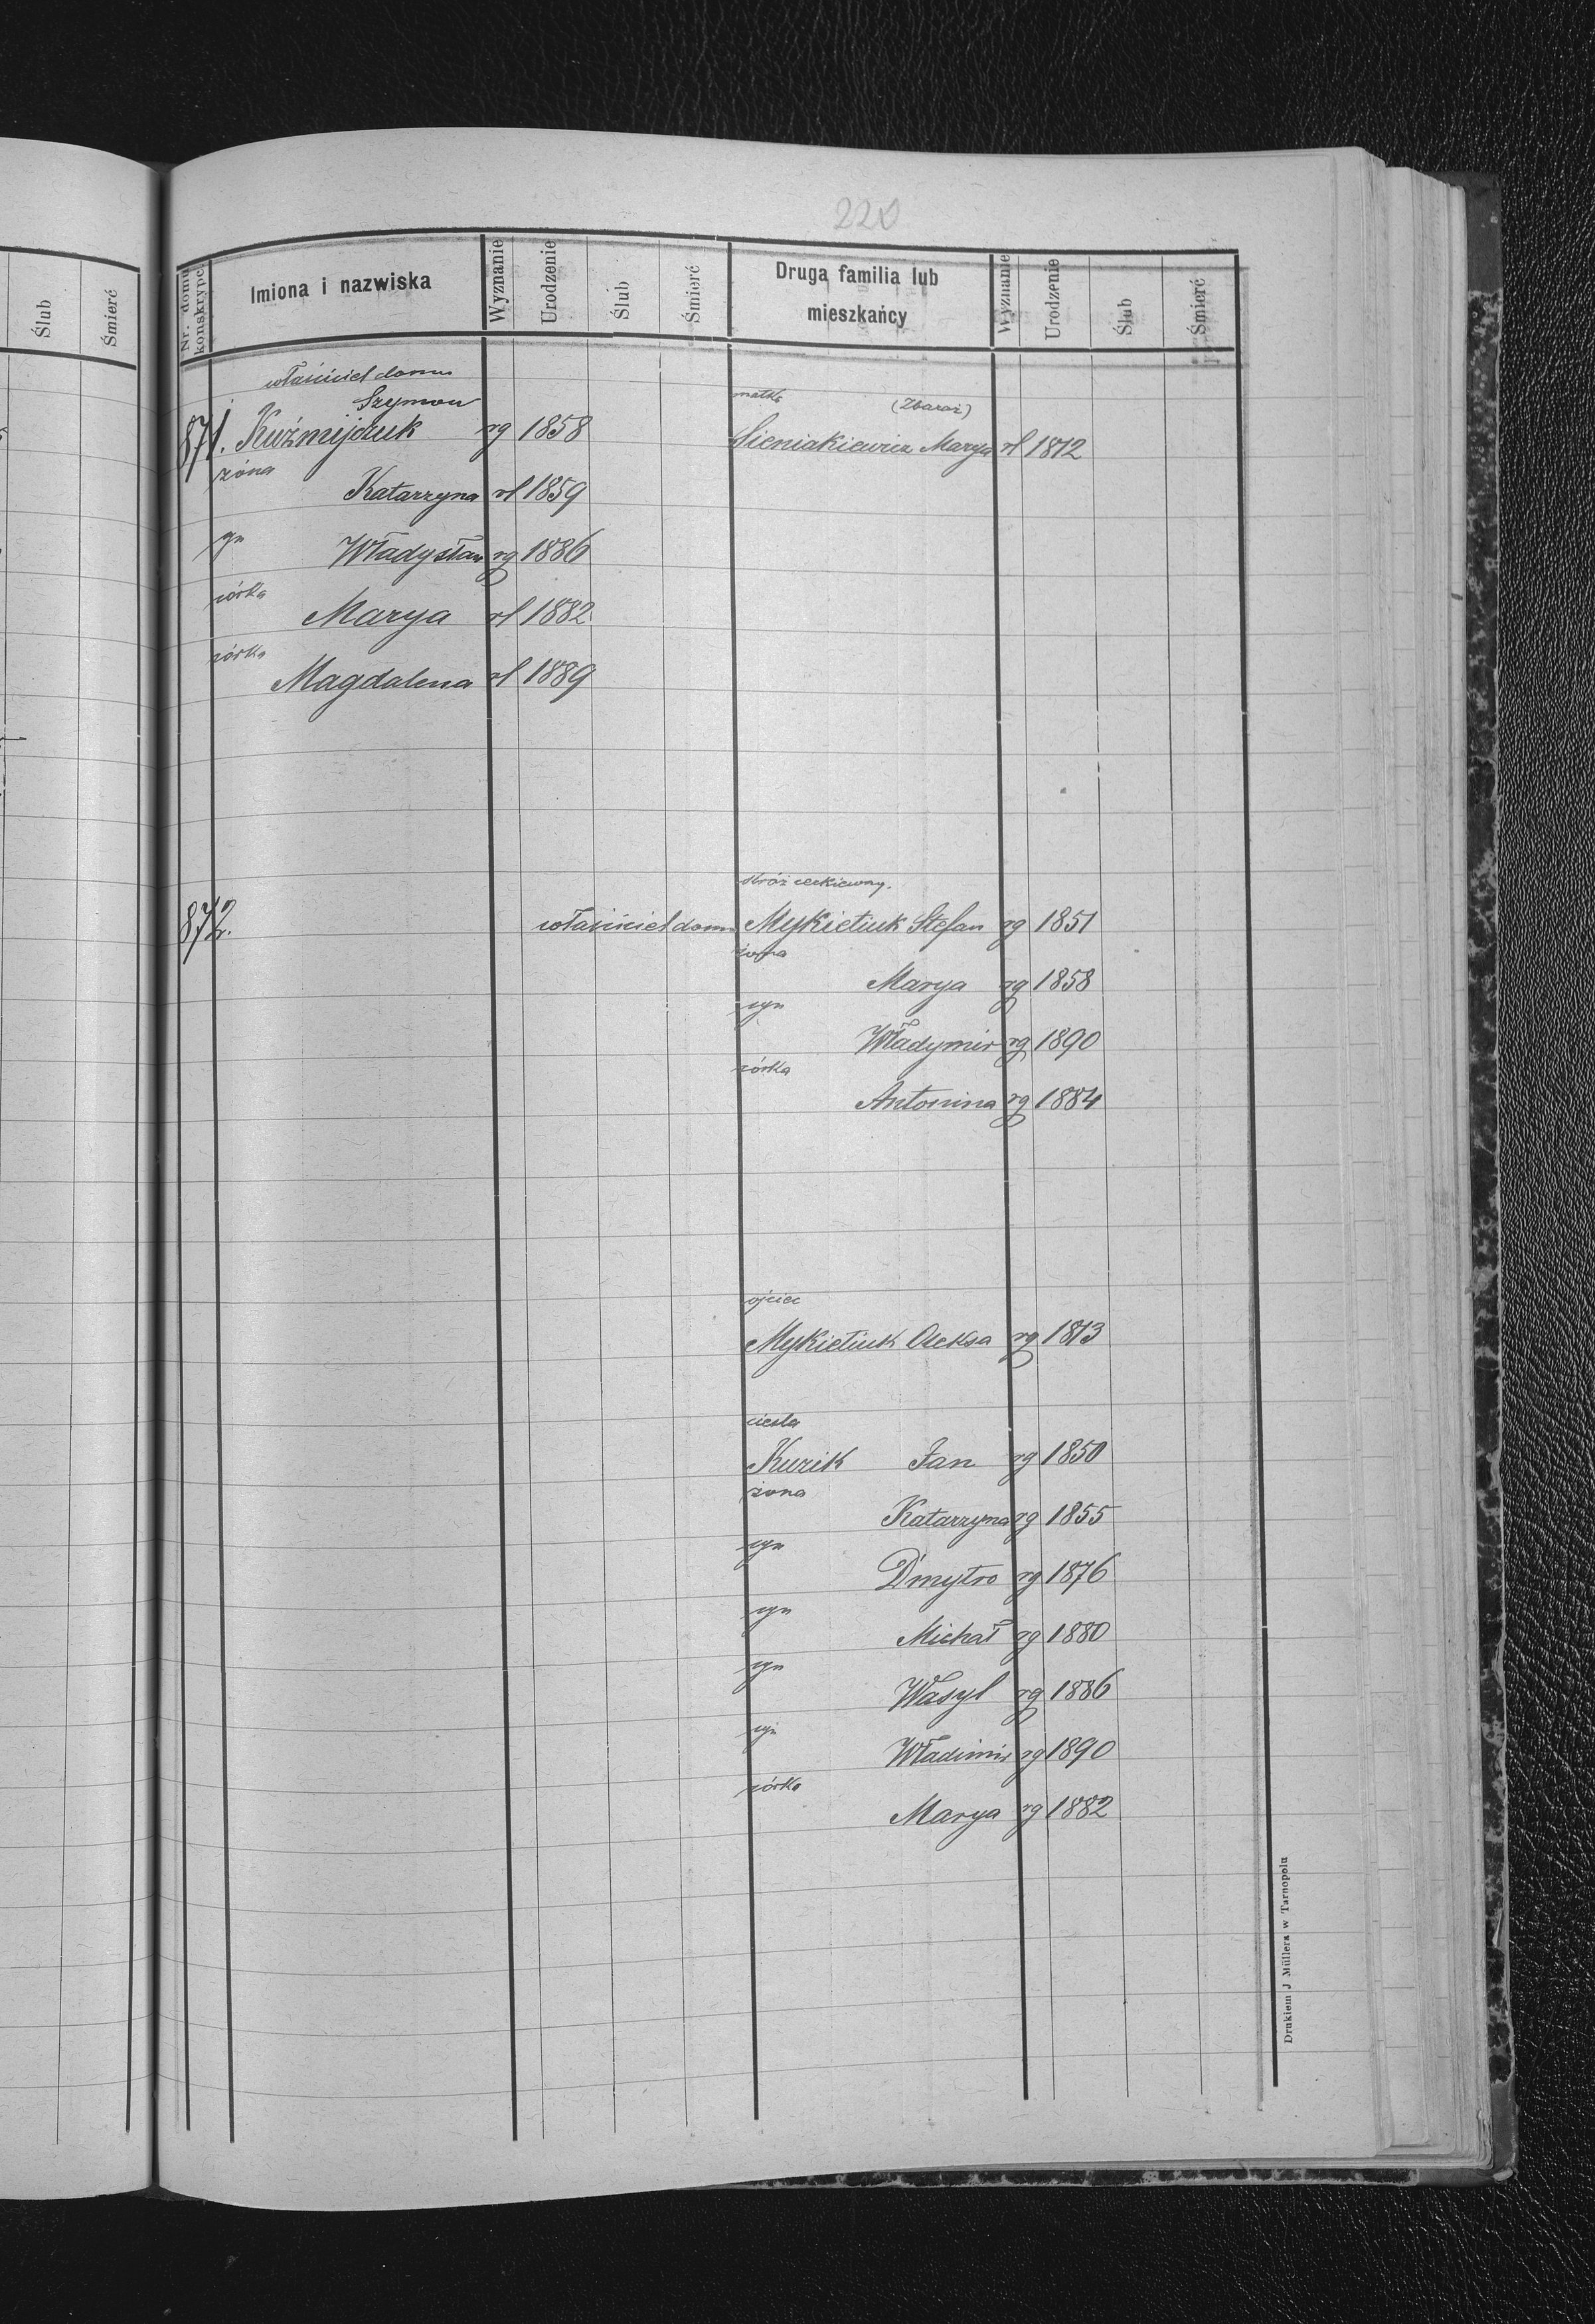 220
Ślub
Śmierć
Nr. domu konskrypc.
Imiona i nazwiska
Wyznanie
Urodzenie
Ślub
Śmierć
Druga familia lub
mieszkańcy
Wyznanie
Urodzenie
Ślub
Śmierć
właściciel domu
Szymon
871. Kuźmijczuk rg 1858
żóna
Katarzyna rl 1859
syn
Władysław rg 1886
córka
Marya rl 1882.
córka
Magdalena rl 1889
matka (Zbaraż)
Sieniakiewicz Marya rl 1812
872.
stróż cerkiewny.
właściciel domu Mykietiuk Stefan rg 1851
żona
Marya rg 1858
syn
Władymir rg 1890
córka
Antonina rg 1884
ojciec
Mykietiuk Oleksa rg 1813
cieśla
Kuzik Jan rg 1850
żona
Katarzyna rg 1855
syn
Dmytro rg 1876
syn
Michał rg 1880
syn
Wasyl rg 1886
syn
Władimir rg 1890
córka
Marya rg 1882
Drukiem J Müllera w Tarnopolu